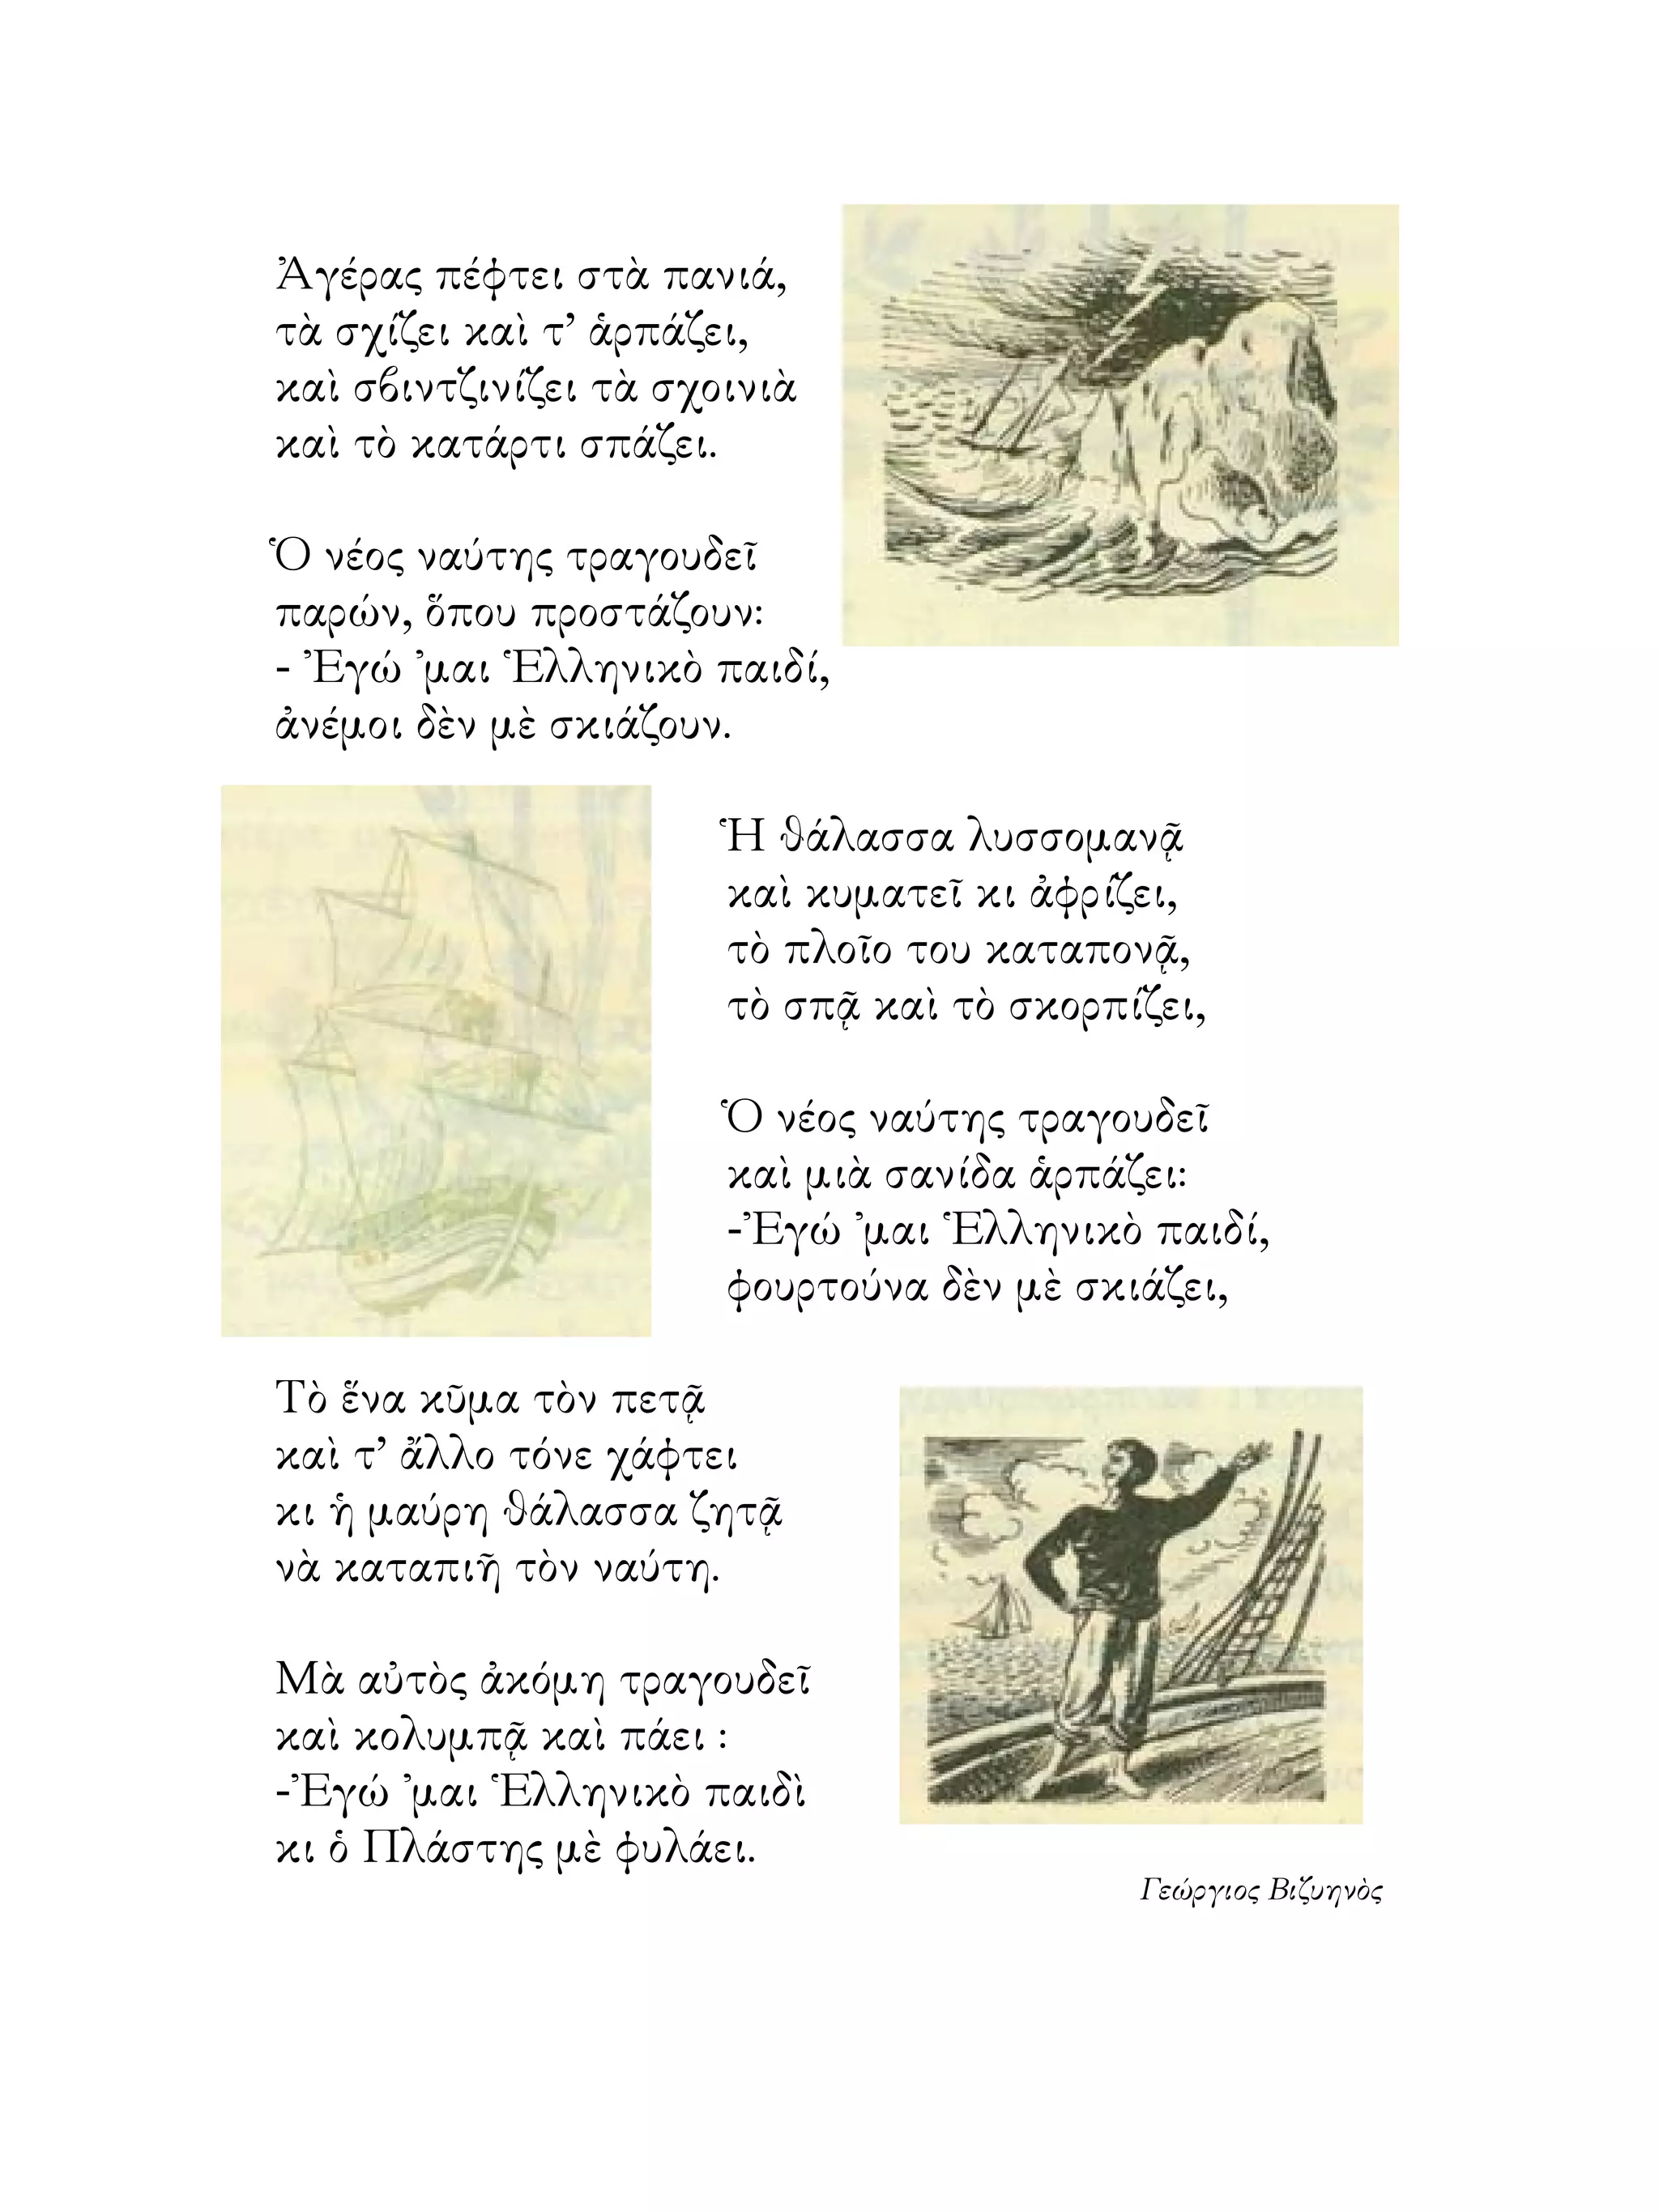 Ἀγέρας πέφτει στὰ πανιά,
τὰ σχίζει καὶ τ’ ἁρπάζει,
καὶ σβιντζινίζει τὰ σχοινιὰ
καὶ τὸ κατάρτι σπάζει.
Ὁ νέος ναύτης τραγουδεῖ
παρών, ὅπου προστάζουν:
- Ἐγώ ᾽μαι Ἑλληνικὸ παιδί,
ἀνέμοι δὲν μὲ σκιάζουν.
Ἡ θάλασσα λυσσομανᾷ
καὶ κυματεῖ κι ἀφρίζει,
τὸ πλοῖο του καταπονᾷ,
τὸ σπᾷ καὶ τὸ σκορπίζει,
Ὁ νέος ναύτης τραγουδεῖ
καὶ μιὰ σανίδα ἁρπάζει:
-Ἐγώ ᾽μαι Ἑλληνικὸ παιδί,
φουρτούνα δὲν μὲ σκιάζει,
Τὸ ἕνα κῦμα τὸν πετᾷ
καὶ τ’ ἄλλο τόνε χάφτει
κι ἡ μαύρη θάλασσα ζητᾷ
νὰ καταπιῆ τὸν ναύτη.
Μὰ αὐτὸς ἀκόμη τραγουδεῖ
καὶ κολυμπᾷ καὶ πάει :
-Ἐγώ ᾽μαι Ἑλληνικὸ παιδὶ
κι ὁ Πλάστης μὲ φυλάει.
Γεώργιος Βιζυηνὸς